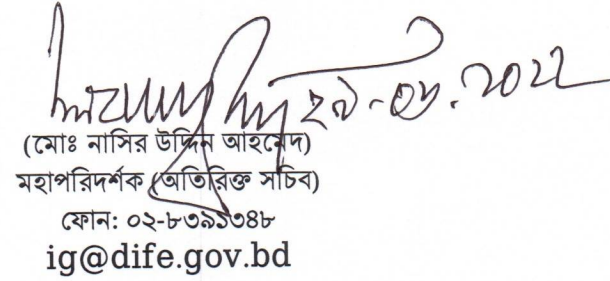 ২৯-০৬.২০২২
(মোঃ নাসির উদ্দিন আহমেদ)
মহাপরিদর্শক (অতিরিক্ত সচিব)
ফোন: ০২-৮৩৯১৩৪৮
ig@dife.gov.bd